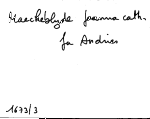 Masscheleyn Joanna Cath.
fa Andries
1673/3